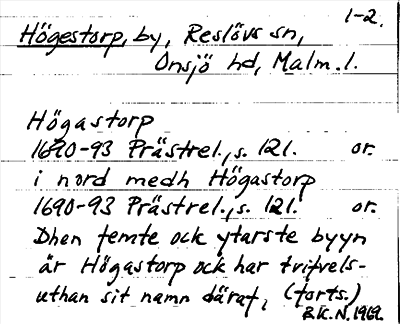 1-2.
Högestorp, by, Reslövs sn,
Onsjö hd, Malm. l.
Högastorp
1690-93 Prästrel., s. 121. or.
i nord medh Högastorp
1690-93 Prästrel., s. 121. or.
Dhen femte ock ytarste byyn
är Högastorp ock har tvifvels-
uthan sit namn däraf, (forts.)
B.K.N. 1969.